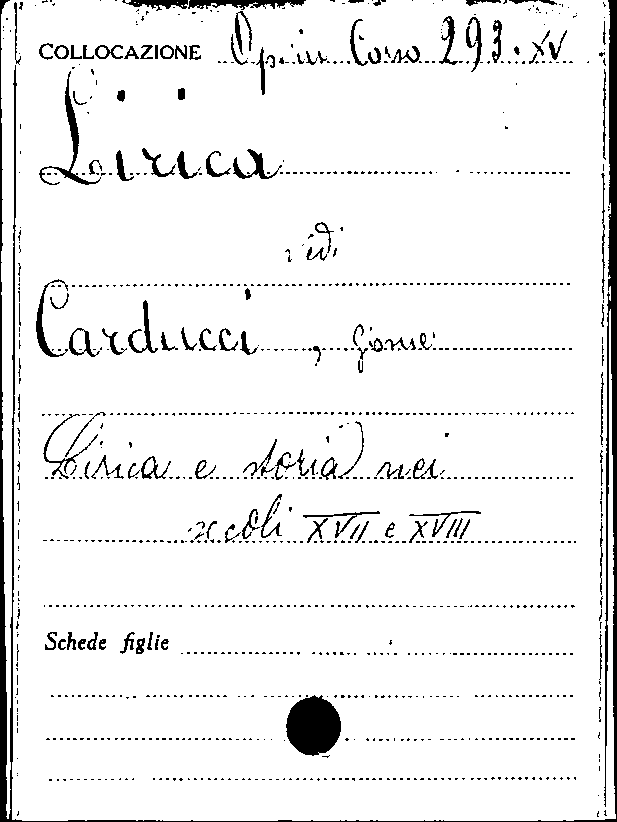 COLLOCAZIONE Op. in Corso 293. XV
Lirica
vedi
Carducci, Giosue
Lirica e storia nei
secoli XVII e XVIII
Schede figlie